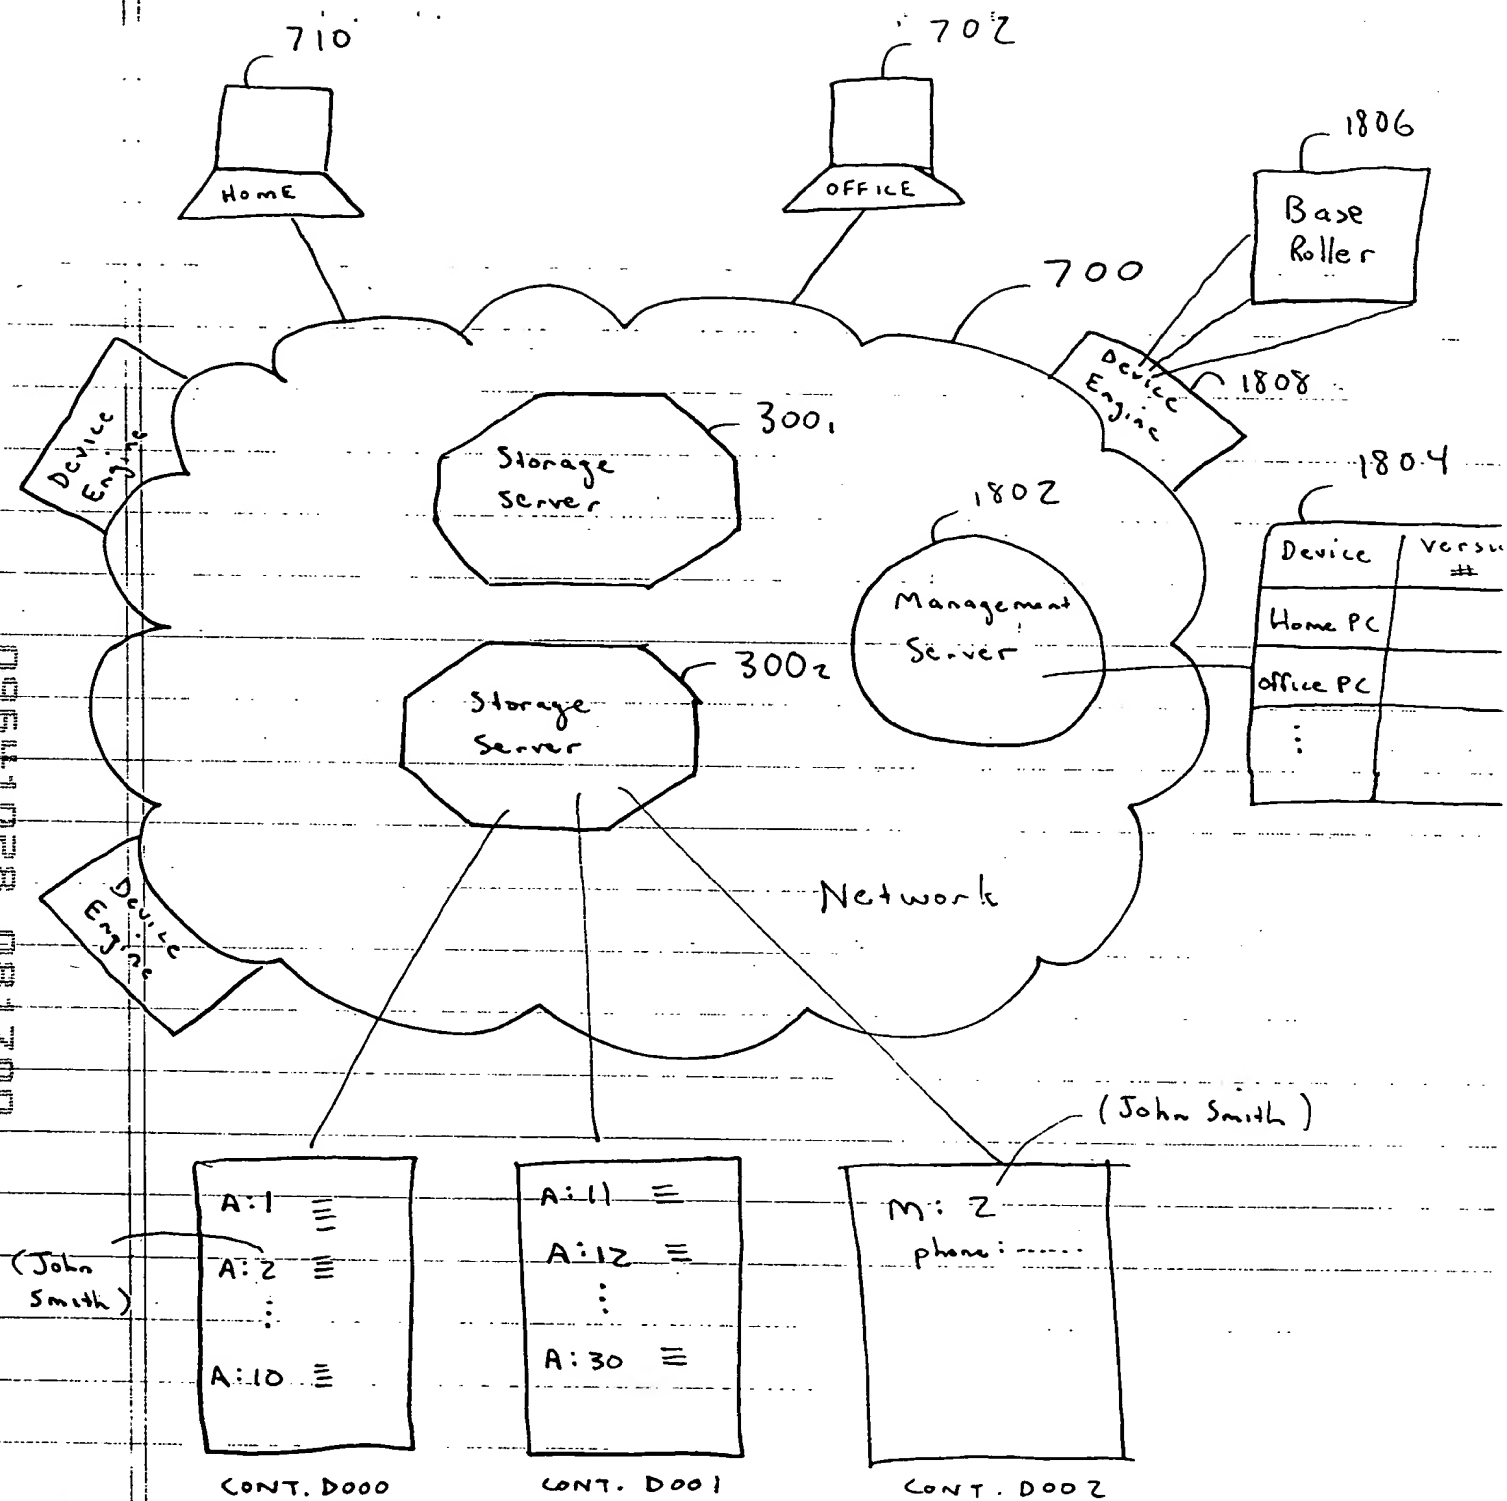 710
702
HOME
OFFICE
1806
Base
Roller
700
Device
Engine
1808
Device
Engine
300₁
Storage
Server
1804
1802
Device
#
Home PC
office PC
Management
Server
300₂
Storage
Server
Network
Device
Engine
(John Smith)
A:1
A:2
(John
Smith)
A:10
A:11
A:12
A:30
M: 2
phone:
CONT. D000
CONT. D001
CONT. D002